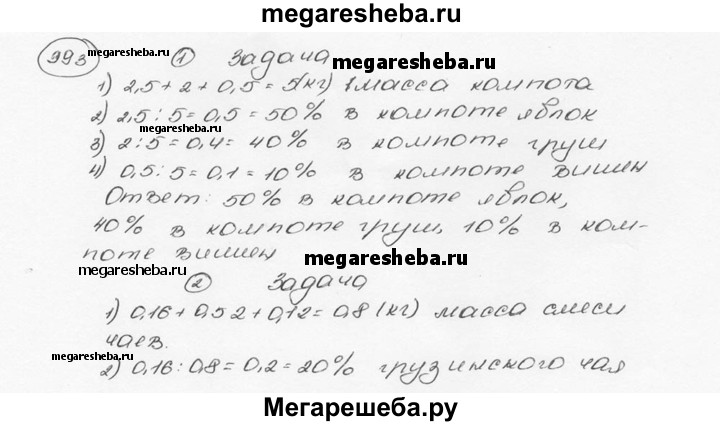 megaresheba.ru
993 megaresheba.ru
① Задача
megaresheba.ru
1) 2,5 + 2 + 0,5 = 5(кг) масса компота
megaresheba.ru
2) 2,5 : 5 = 0,5 = 50% в компоте яблок
megaresheba.ru
3) 2 : 5 = 0,4 = 40% в компоте груш
4) 0,5 : 5 = 0,1 = 10% в компоте вишен
Ответ: 50% в компоте яблок,
40% в компоте груш, 10% в ком-
поте вишен
megaresheba.ru
megaresheba.ru
② Задача
1) 0,16 + 0,52 + 0,12 = 0,8 (кг) масса смеси
megaresheba.ru
чаев.
megaresheba.ru
2) 0,16 : 0,8 = 0,2 = 20% грузинского чая
Мегарешеба.ру